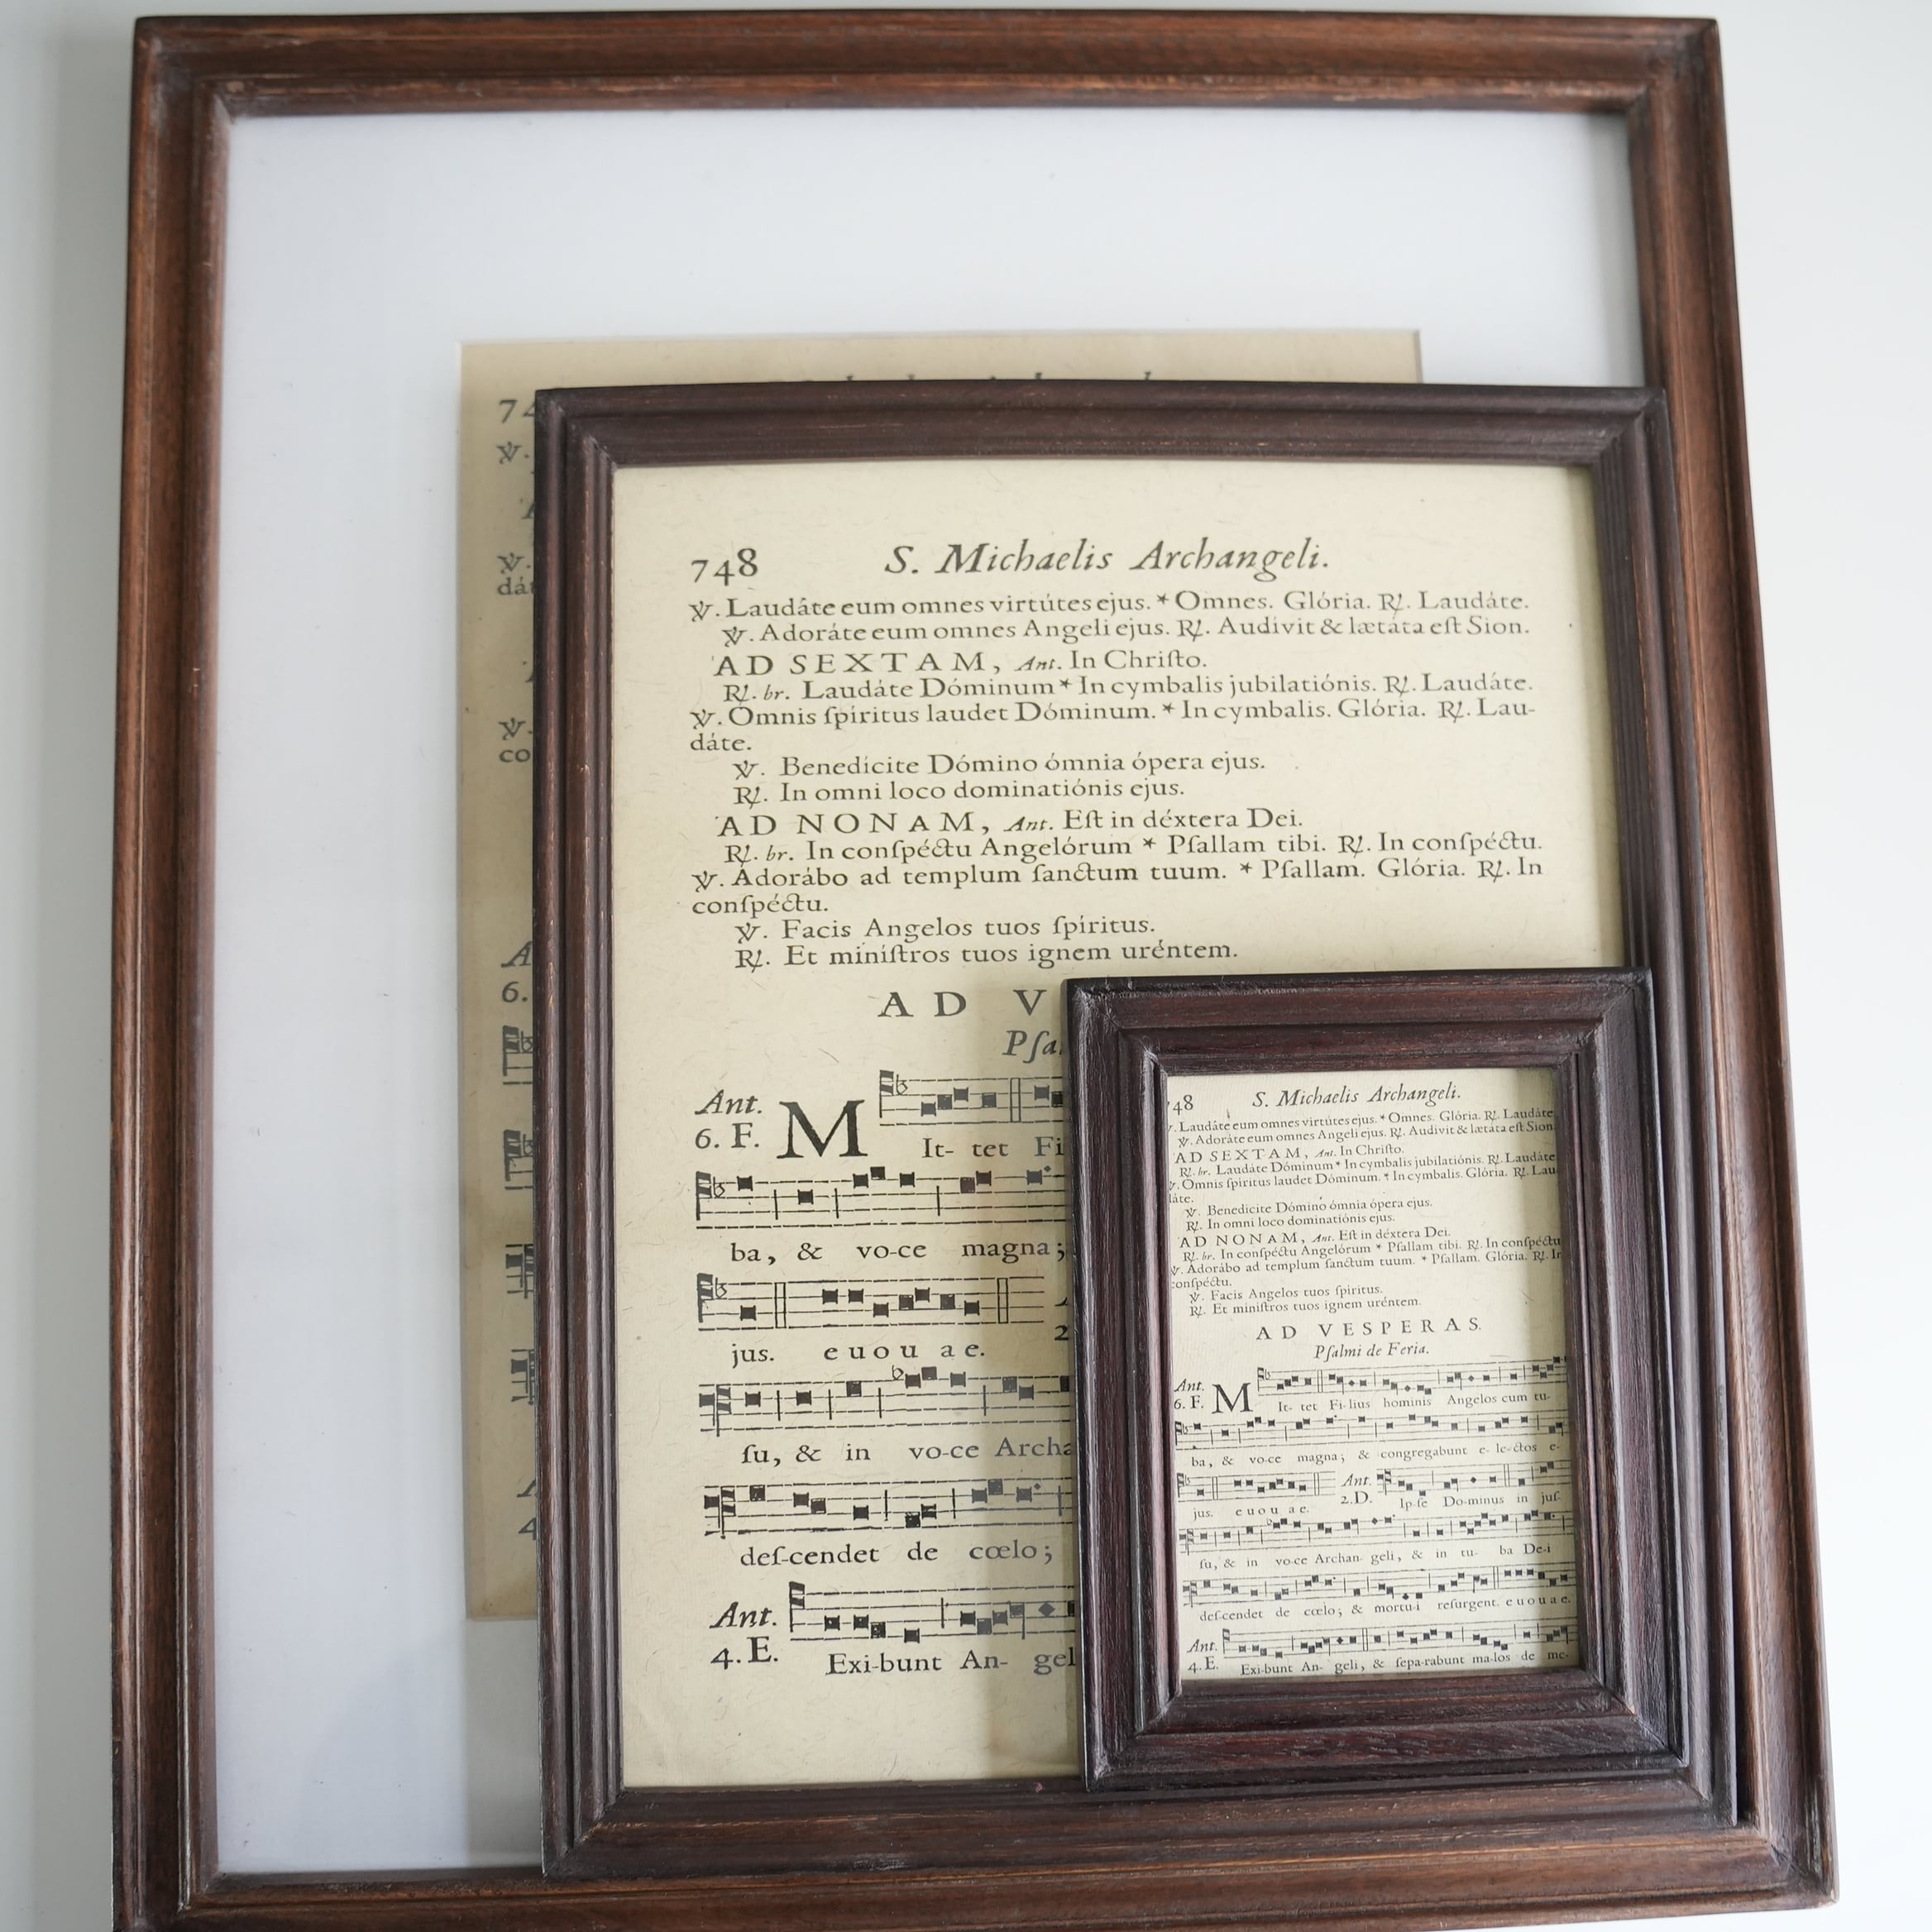 748 S. Michaelis Archangeli.
℣. Laudáte eum omnes virtútes ejus. * Omnes. Glória. ℟. Laudáte.
℣. Adoráte eum omnes Angeli ejus. ℟. Audivit & lætáta eſt Sion.
AD SEXTAM, Ant. In Chriſto.
℟. br. Laudáte Dóminum * In cymbalis jubilatiónis. ℟. Laudáte.
℣. Omnis ſpíritus laudet Dóminum. * In cymbalis. Glória. ℟. Lau-
dáte.
℣. Benedícite Dómino ómnia ópera ejus.
℟. In omni loco dominatiónis ejus.
AD NONAM, Ant. Eſt in déxtera Dei.
℟. br. In conſpéctu Angelórum * Pſallam tibi. ℟. In conſpéctu.
℣. Adorábo ad templum ſanctum tuum. * Pſallam. Glória. ℟. In
conſpéctu.
℣. Facis Angelos tuos ſpíritus.
℟. Et miníſtros tuos ignem uréntem.
AD V
Pſa
Ant.
6. F. M It- tet Fi
ba, & vo-ce magna;
2
jus. e u o u a e.
ſu, & in vo-ce Archa
deſ-cendet de cœlo;
Ant.
4. E. Exi-bunt An- gel
74
℣.
℣.
dát
℣.
co
A
6.
4
48 S. Michaelis Archangeli.
. Laudáte eum omnes virtútes ejus. * Omnes. Glória. ℟. Laudáte
℣. Adoráte eum omnes Angeli ejus. ℟. Audivit & lætáta eſt Sion.
AD SEXTAM, Ant. In Chriſto.
℟. br. Laudáte Dóminum * In cymbalis jubilatiónis. ℟. Laudáte
℣. Omnis ſpíritus laudet Dóminum. * In cymbalis. Glória. ℟. Lau
láte.
℣. Benedícite Dómino ómnia ópera ejus.
℟. In omni loco dominatiónis ejus.
AD NONAM, Ant. Eſt in déxtera Dei.
℟. br. In conſpéctu Angelórum * Pſallam tibi. ℟. In conſpéctu
℣. Adorábo ad templum ſanctum tuum. * Pſallam. Glória. ℟. In
conſpéctu.
℣. Facis Angelos tuos ſpíritus.
℟. Et miníſtros tuos ignem uréntem.
AD VESPERAS.
Pſalmi de Feria.
Ant.
6. F. M It- tet Fi-lius hominis Angelos cum tu-
ba, & vo-ce magna; & congregabunt e- le-ctos e-
Ant.
2. D.
jus. e u o u a e. Ip-ſe Do-minus in juſ-
ſu, & in vo-ce Archan- geli, & in tu- ba De-i
deſ-cendet de cœlo; & mortu-i reſurgent. e u o u a e.
Ant.
4. E. Exi-bunt An- geli, & ſepa-rabunt ma-los de me-